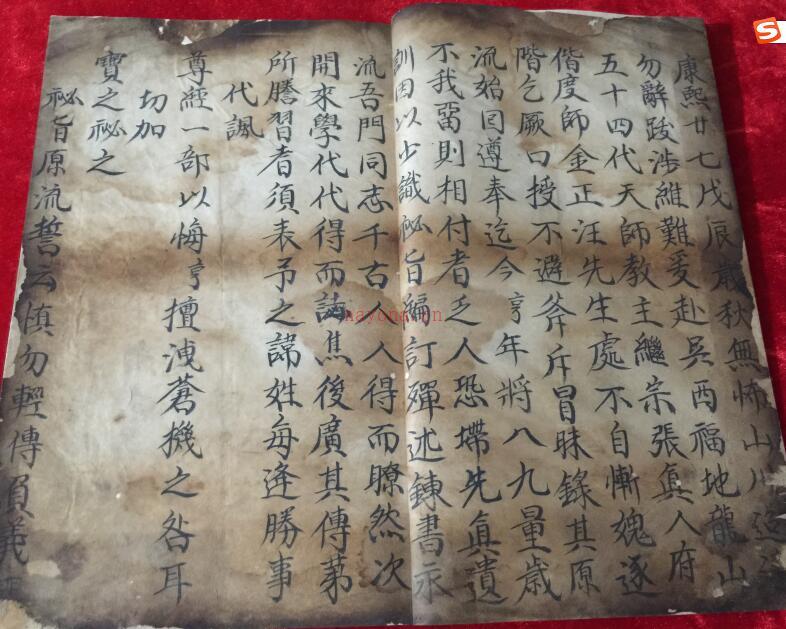 康熙廿七戊辰歲秋無怖山川迢
勿辭跋涉維難爰赴吳西福地龍山
五十四代天師教主繼宗張真人府
偕度師金正汪先生處不自慚媿逐
階乞厥口授不避斧斥冒昧錄其原
流始囙遵奉迄今亨年將八九量歲
不我畱則相付者乏人恐墆先眞遺
訓囙以少識祕旨編訂殫述鍊書永
流吾門同志千古人人得而瞭然次
開來學代代得而誦焦後廣其傳苐
所謄習者須表予之諱姓每逢勝事
代諷
尊經一部以悔亨擅洩蒼機之咎耳
切加
寶之祕之
祕旨原流誓云慎勿輕傳負義